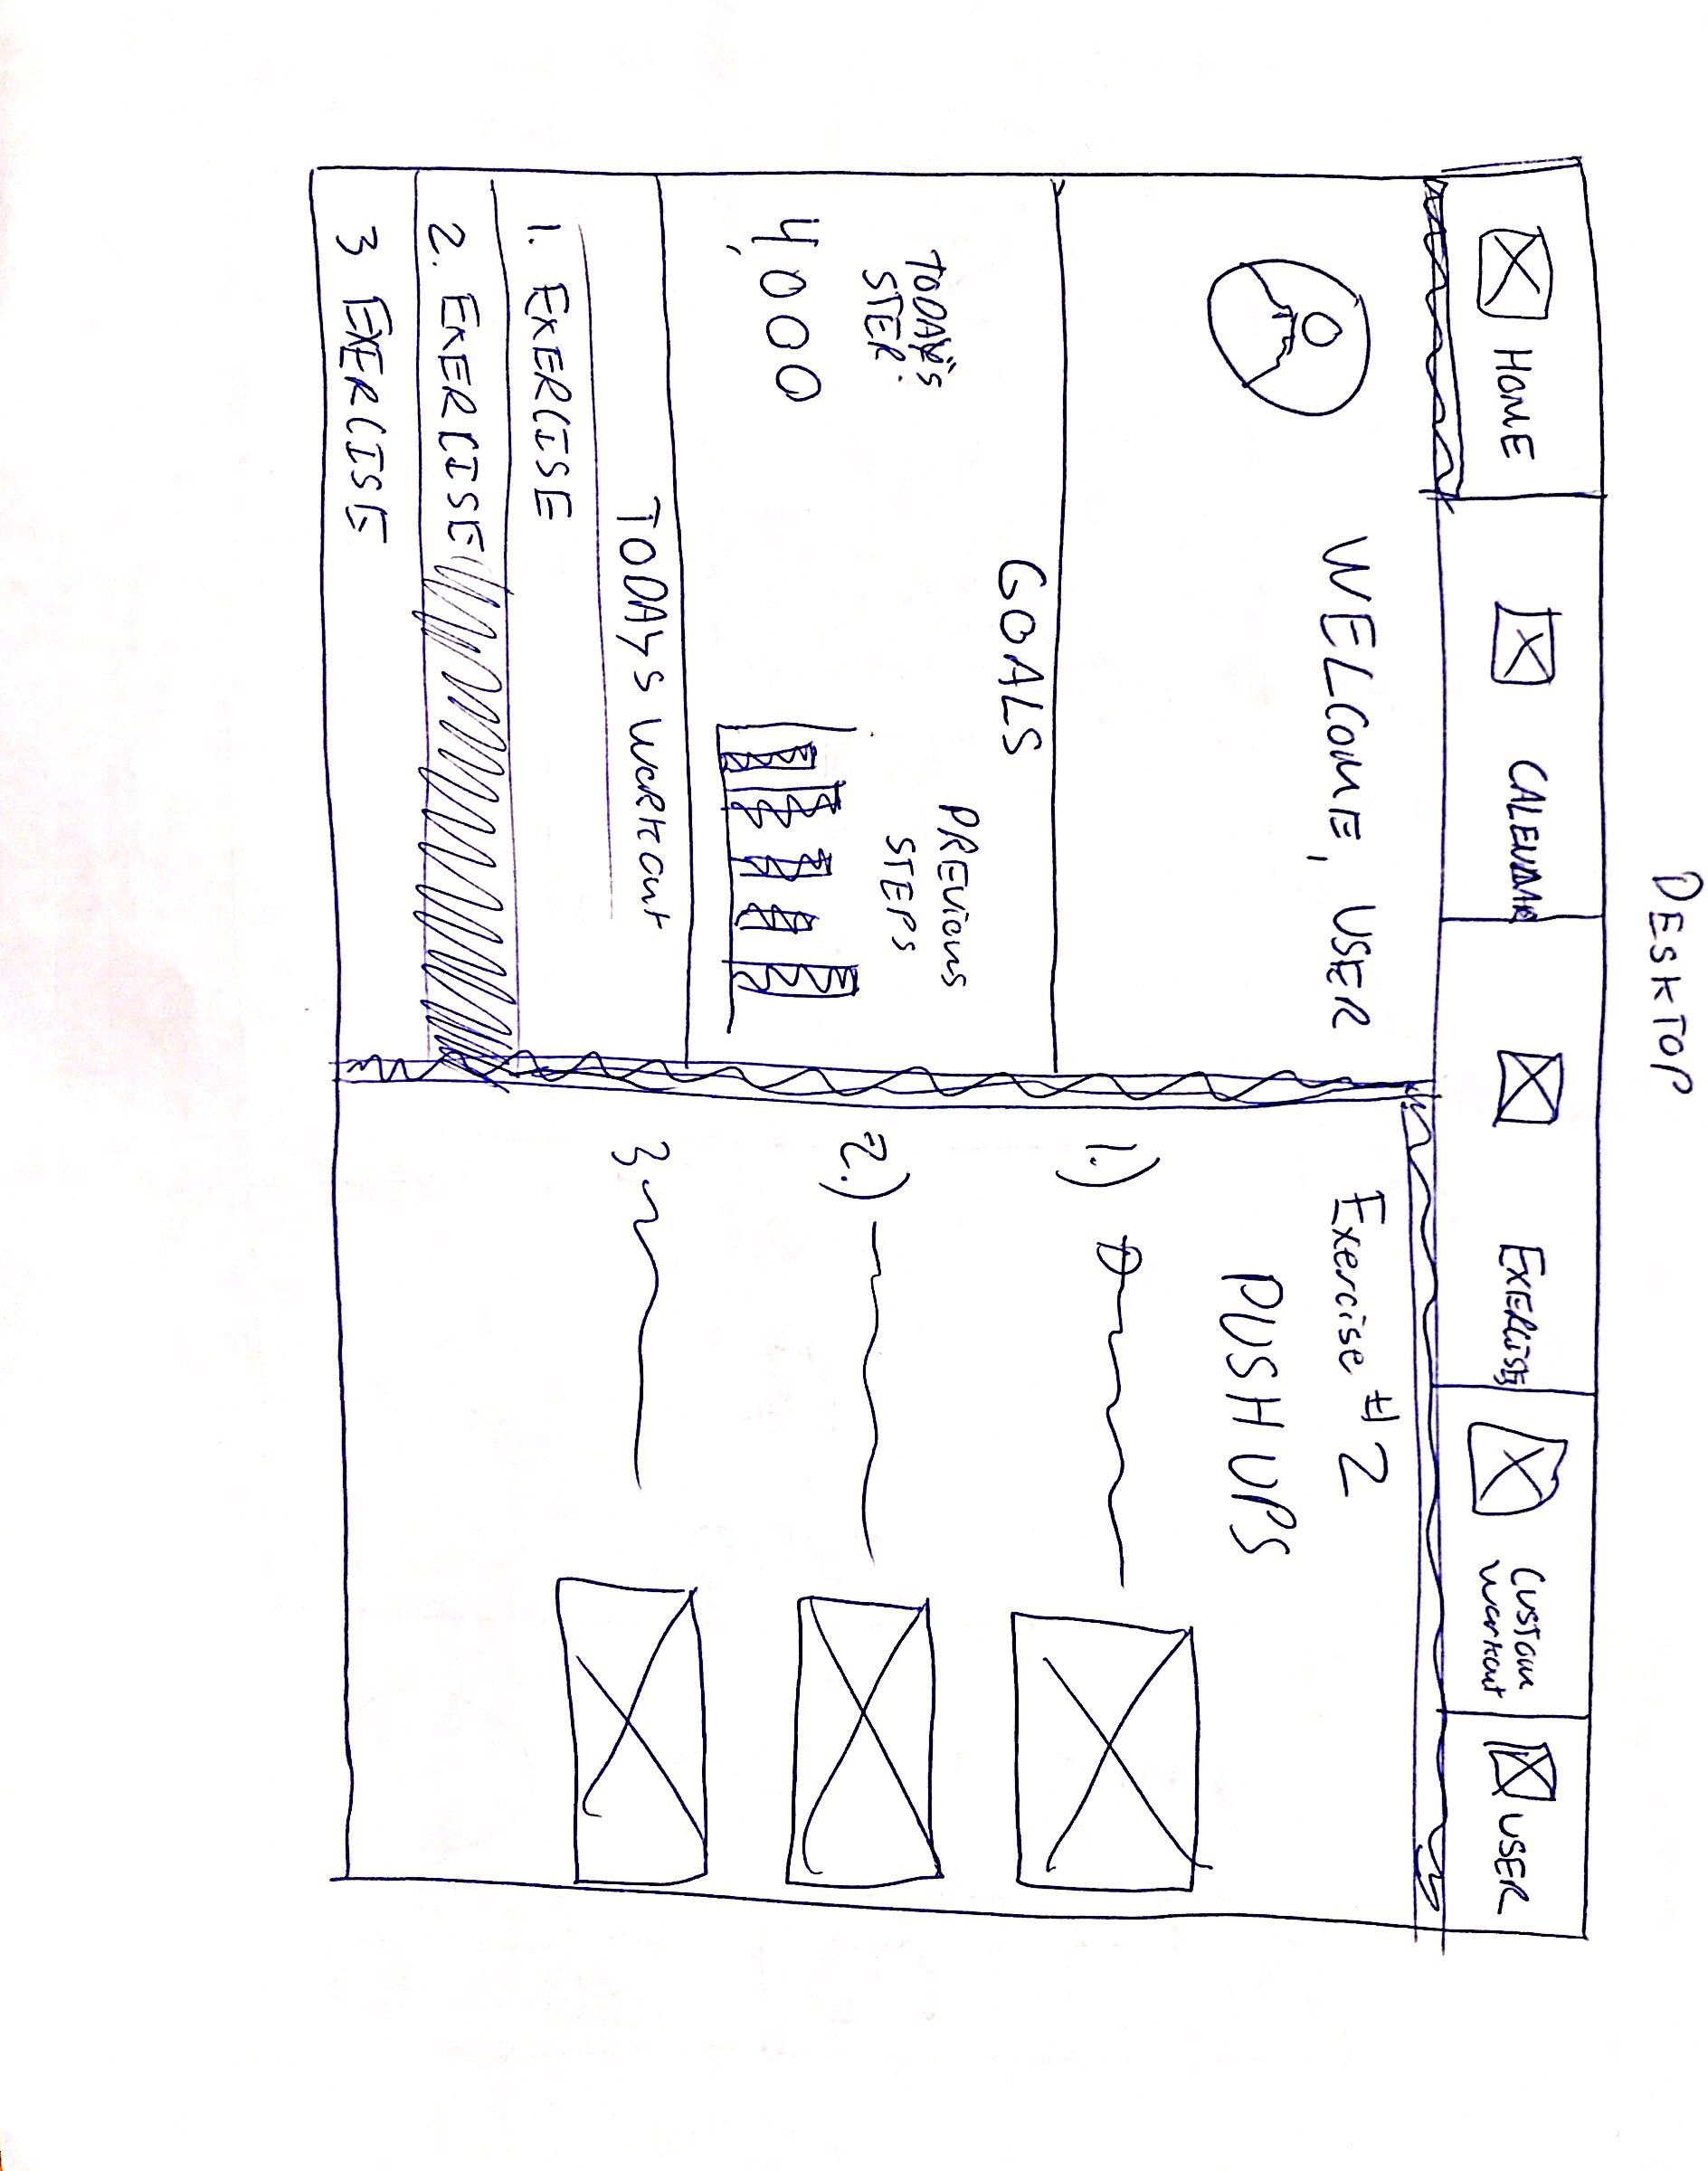 DESKTOP
HOME
CALENDAR
EXERCISE
CUSTOM
WORKOUT
USER
WELCOME, USER
GOALS
TODAY'S
STEP.
4,000
PREVIOUS
STEPS
TODAYS WORKOUT
1. EXERCISE
2. EXERCISE
3 EXERCISE
Exercise #2
PUSH UPS
1.)
2.)
3